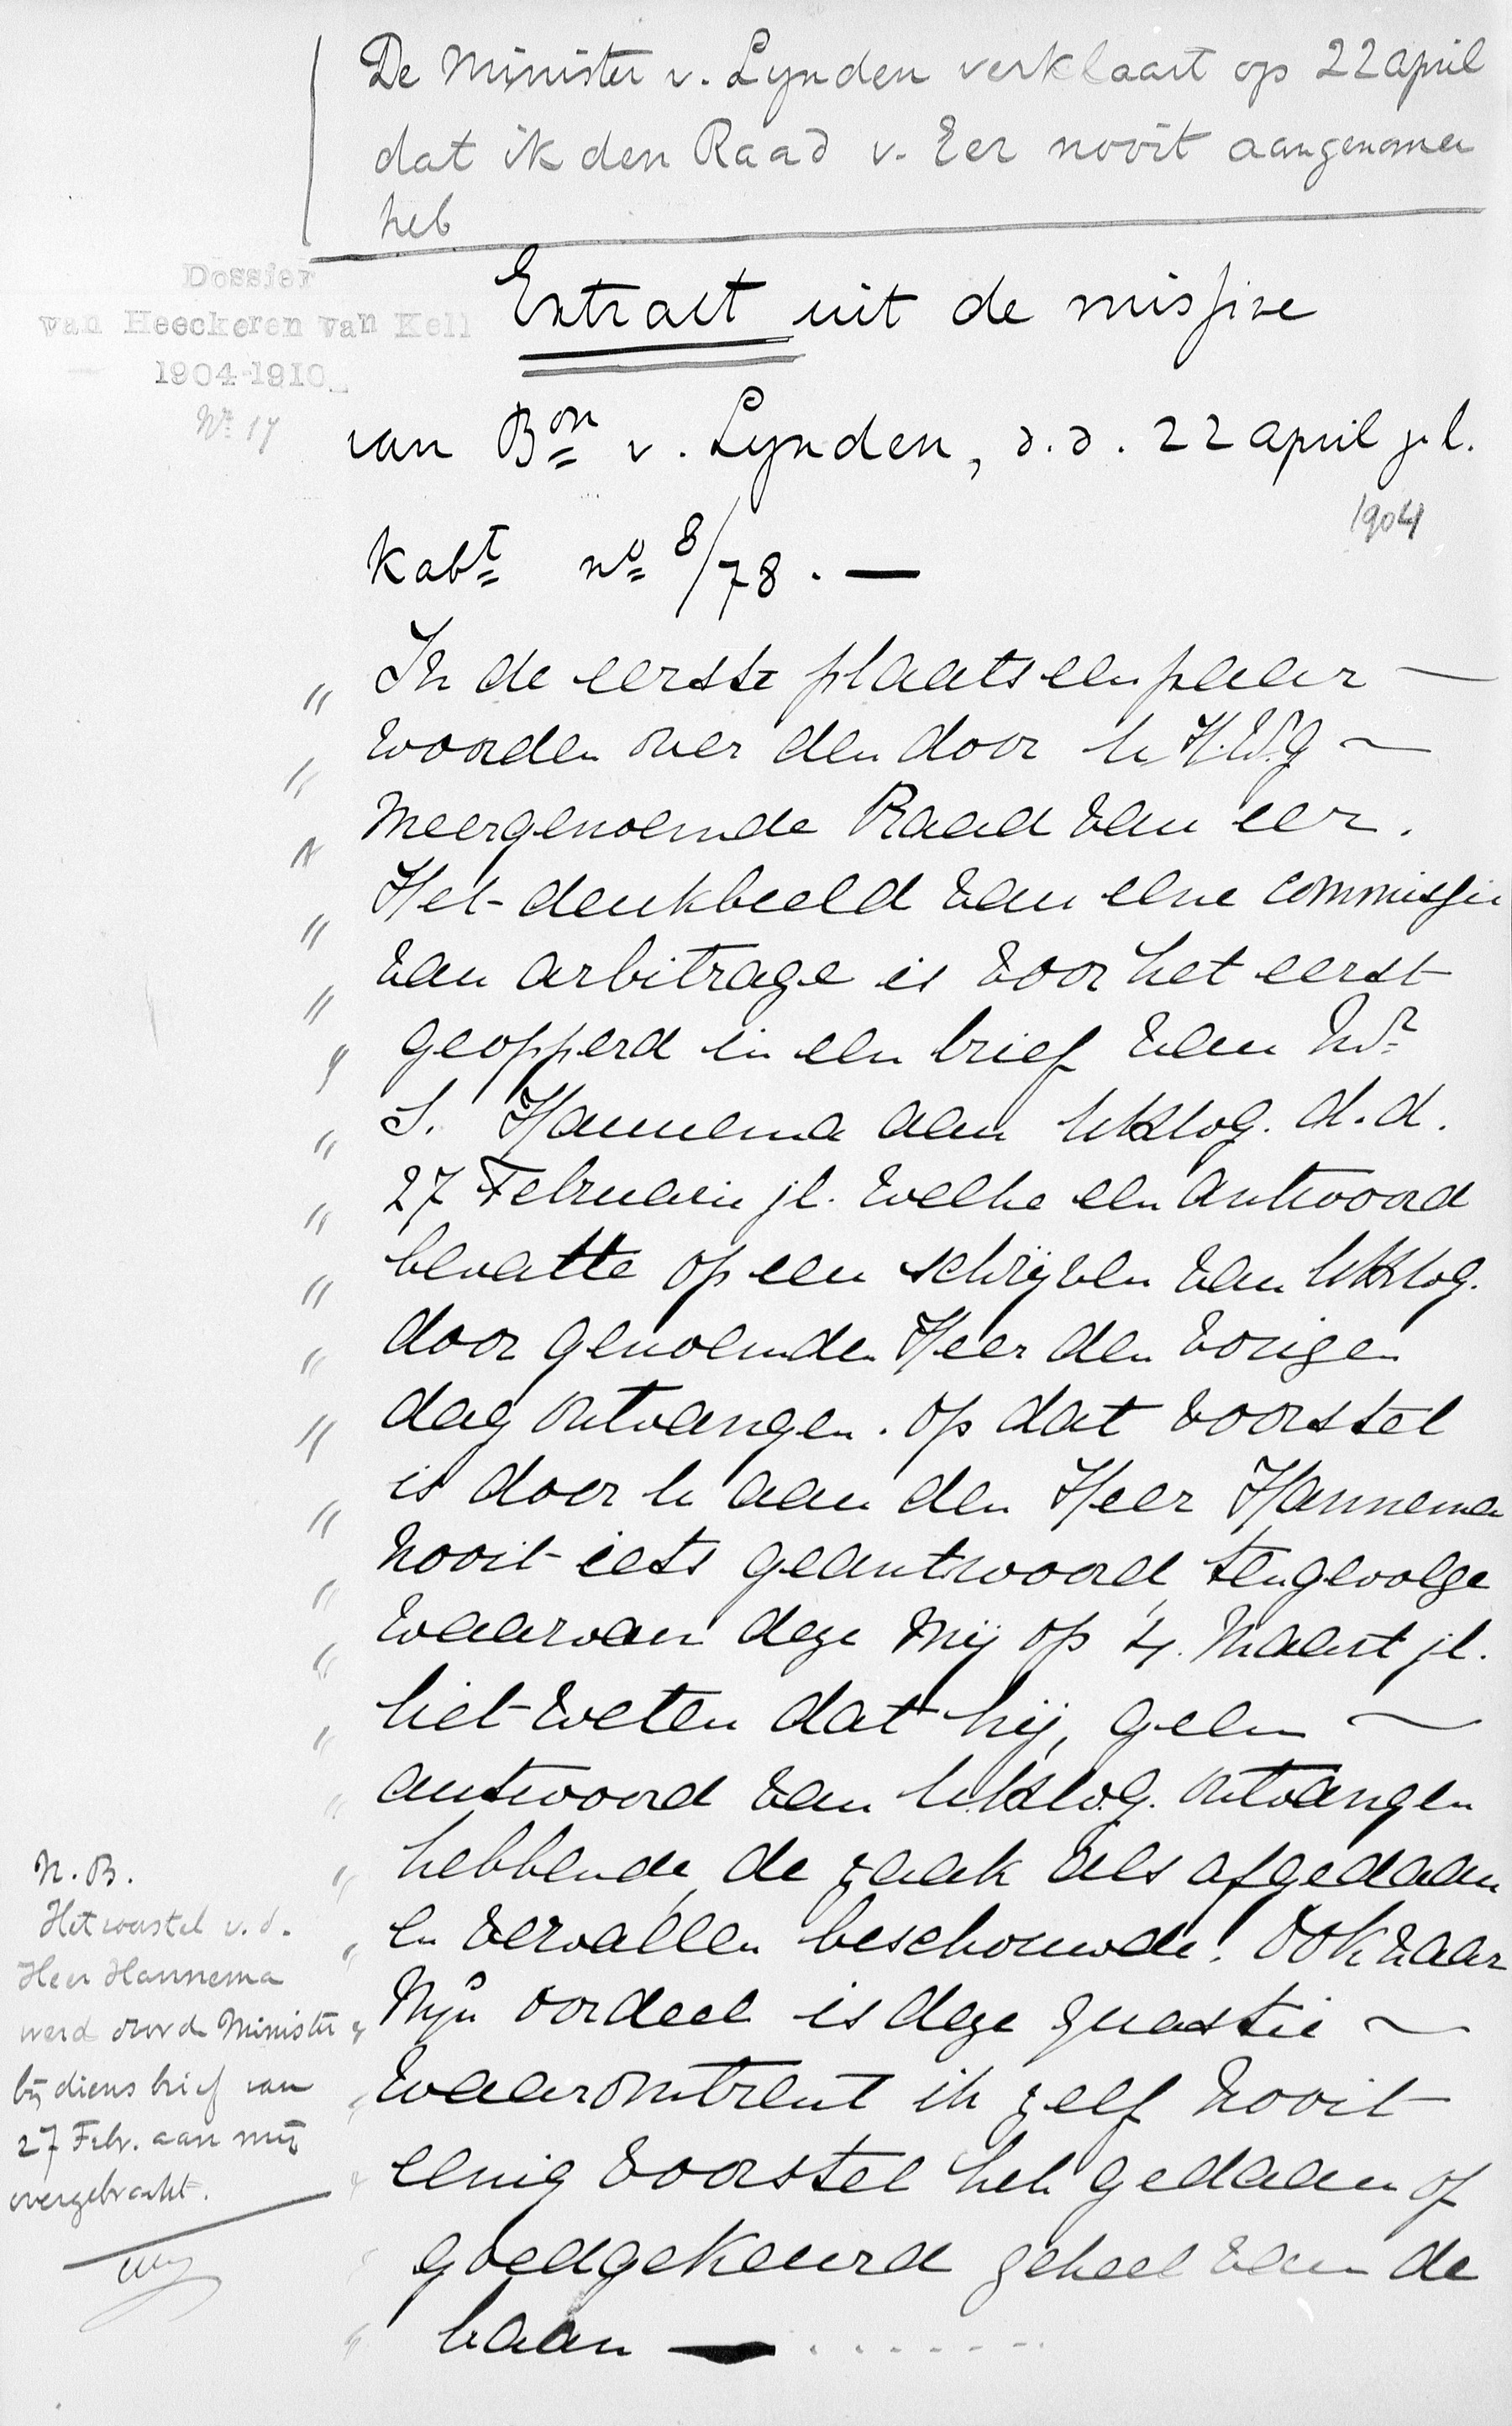 De Minister v. Lynden verklaart op 22 april
dat ik den Raad v. Eer nooit aangenomen
heb
Dossier
van Heeckeren van Kell
1904-1910
Nr. 17
Extract uit de missive
van Bon v. Lynden, d.d. 22 april jl.
1904
Kabt no 8/78. —
" In de eerste plaats een paar —
" woorden over den door U H.W.G —
" meergenoemde Raad van eer.
" Het denkbeeld van eene commissie
" van arbitrage is voor het eerst
" geopperd in een brief van Mr
" S. Hannema aan UHWG. d.d.
" 27 Februari jl. welke een antwoord
" bevatte op een schrijven van UHWG.
" door genoemden Heer den vorigen
" dag ontvangen. Op dat voorstel
" is door U aan den Heer Hannema
" nooit iets geantwoord, tengevolge
" waarvan deze mij op 4. Maart jl.
" liet weten dat hij, geen —
" antwoord van UHWG. ontvangen
" hebbende, de zaak als afgedaan
" en vervallen beschouwde. Ook naar
" Mijn oordeel is deze quaestie —
" waaromtrent ik zelf nooit
" eenig voorstel heb gedaan of
" goedgekeurd geheel van de
" baan — . . . . . . . .
N.B.
Het voorstel v. d.
Heer Hannema
werd door de Minister
bij diensbrief van
27 Febr. aan mij
overgebracht.